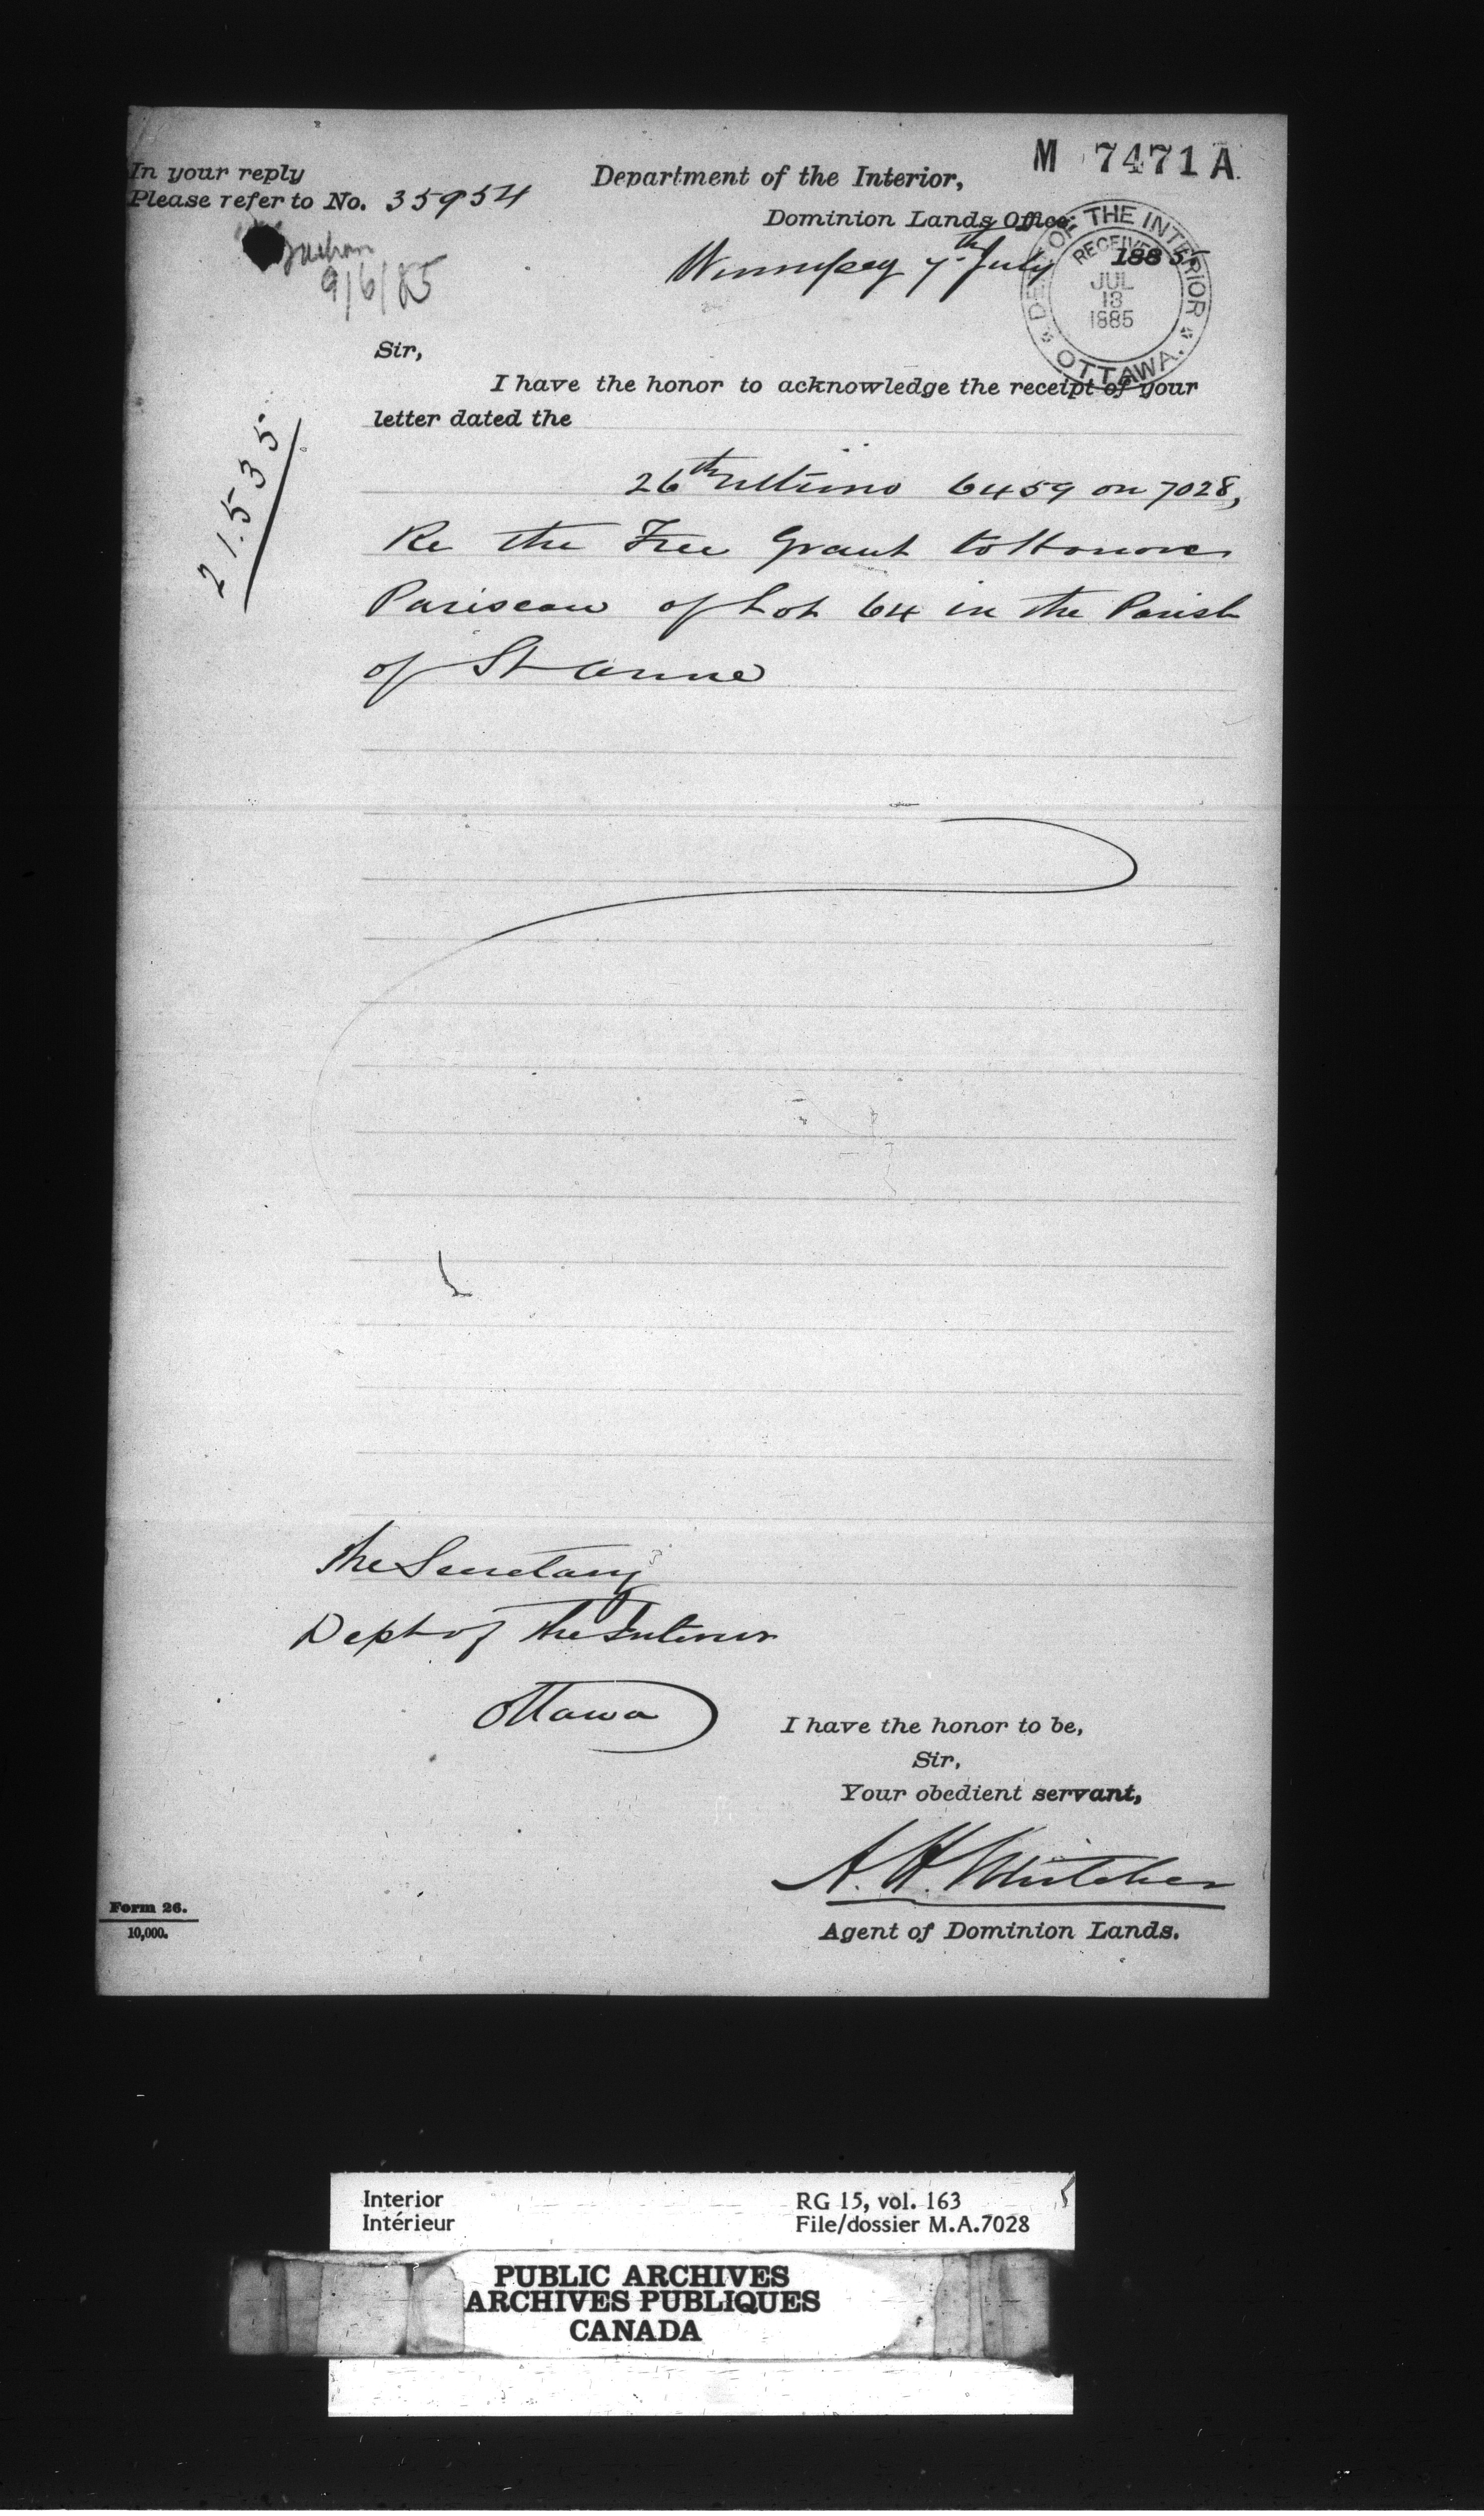 M 7471 A.
In your reply
Please refer to No. 35954
Department of the Interior,
Dominion Lands Office,
Winnipeg 7th July 1885
DEPT OF THE INTERIOR
RECEIVED
JUL
13
1885
OTTAWA.
9/6/85
21.535
Sir,
I have the honor to acknowledge the receipt of your
letter dated the
26th ultimo 6459 on 7028,
Re the Free Grant to
Pariseau of Lot 64 in the Parish
of St Anne
The Secretary
Dept of the Interior
Ottawa
I have the honor to be,
Sir,
Your obedient servant,
A. H. Whitcher
Agent of Dominion Lands.
Form 26.
10,000.
Interior
Intérieur
RG 15, vol. 163
File/dossier M.A.7028
PUBLIC ARCHIVES
ARCHIVES PUBLIQUES
CANADA